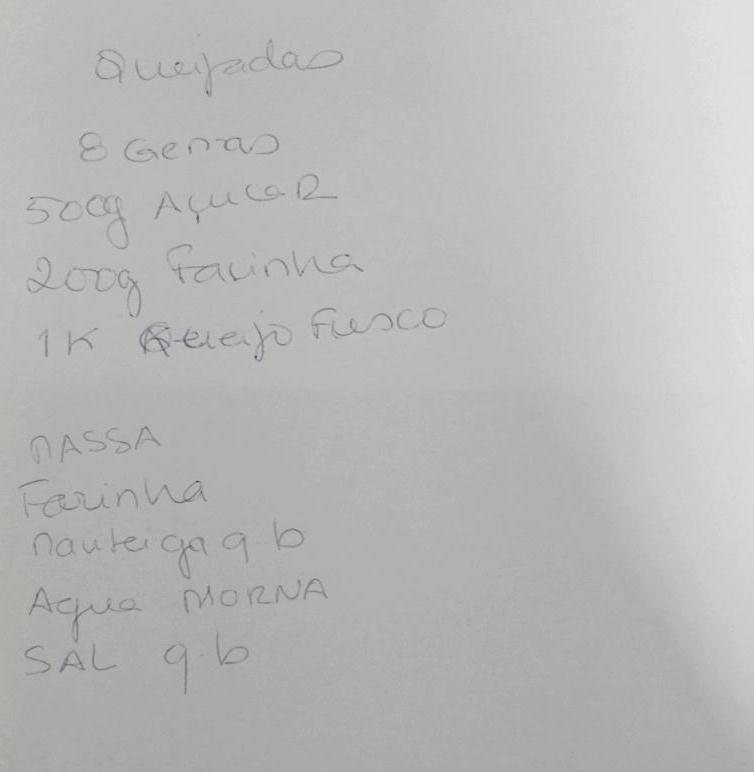 Queijadas
8 Gemas
500g Açucar
200g Farinha
1K Queijo Fresco
MASSA
Farinha
Manteiga q.b
Agua MORNA
SAL q.b